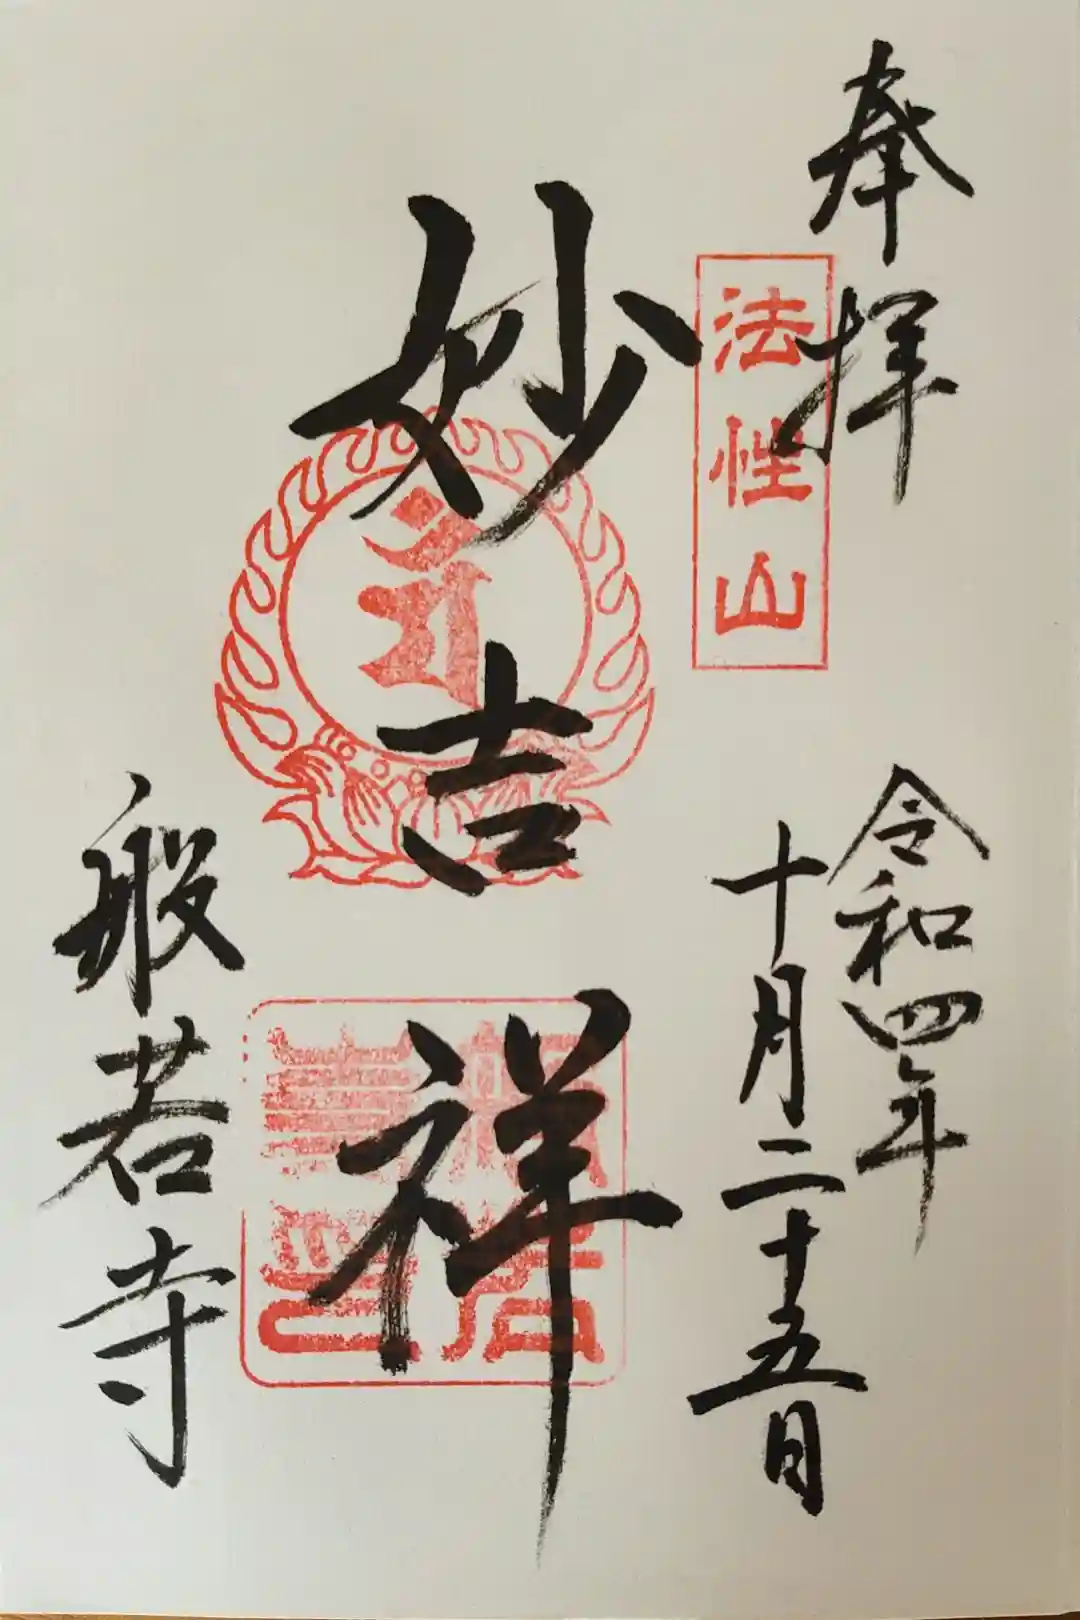 奉拝
法性山
令和四年
十月二十五日
妙吉祥
般若寺